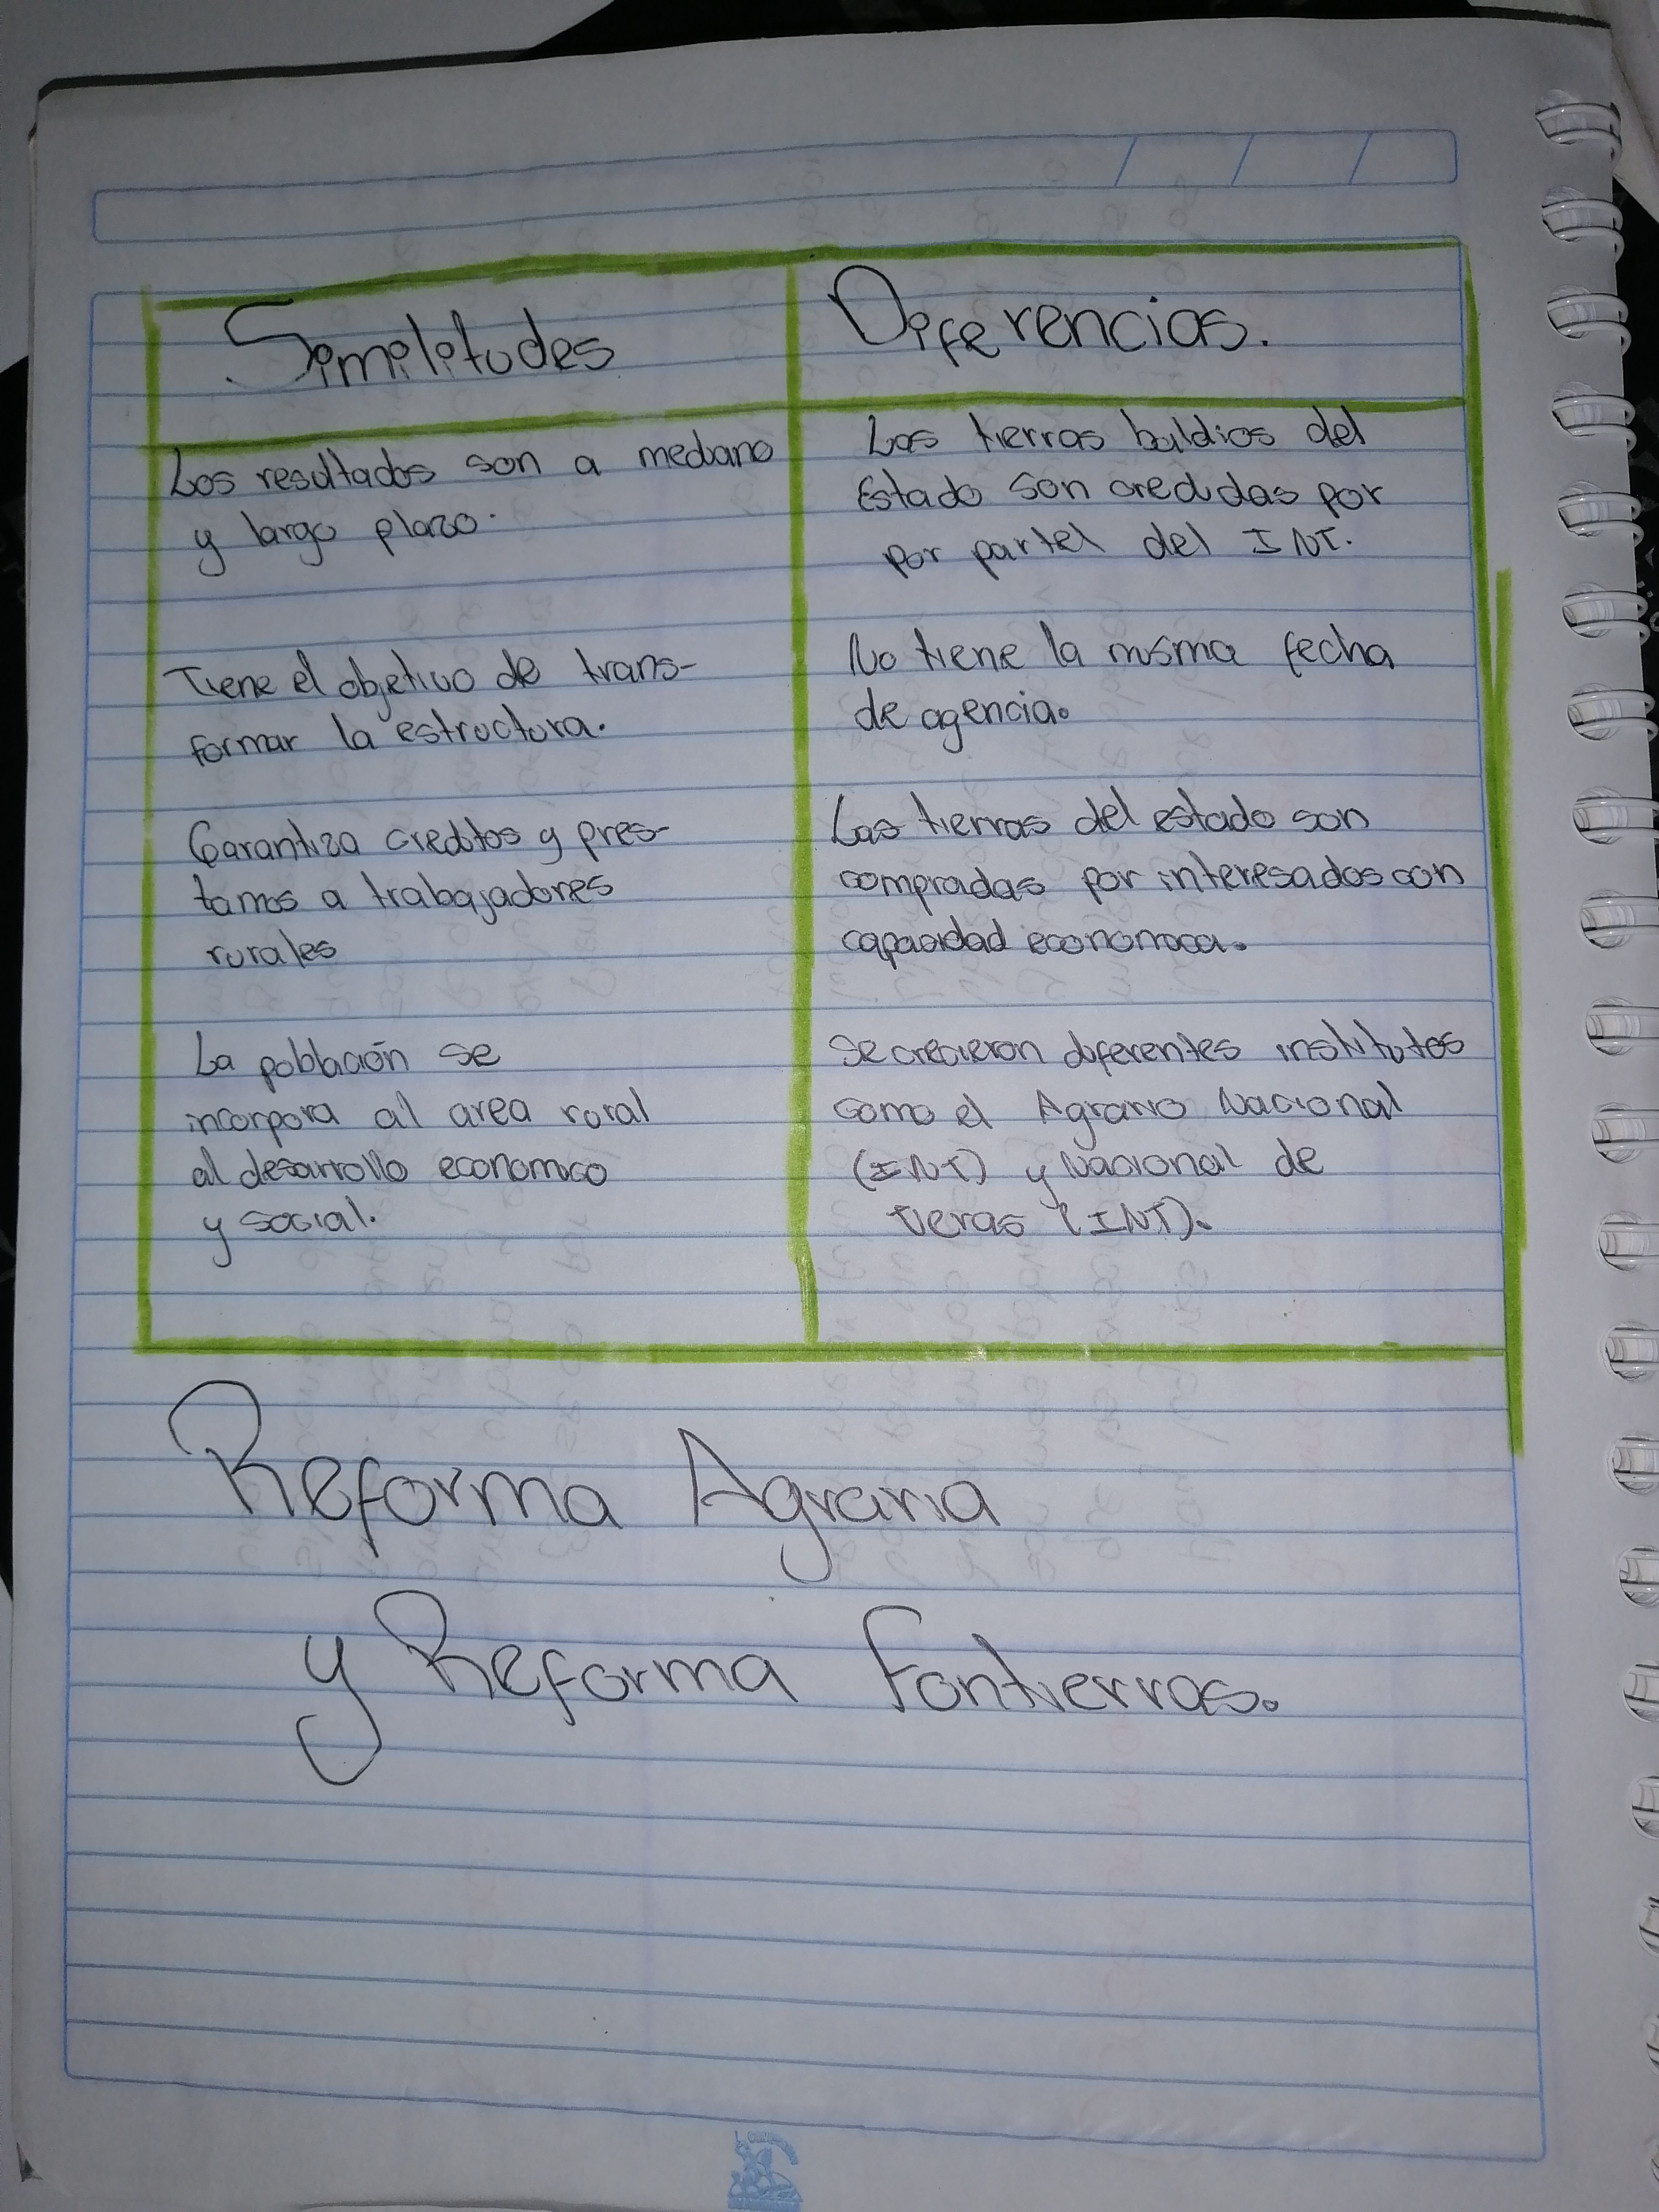 Similitudes
Los resultados son a mediano
y largo plazo.
Tiene el objetivo de trans-
formar la estructura.
Garantiza creditos y pres-
tamos a trabajadores
rurales
La población se
incorpora al area rural
al desarrollo economico
y social.
Diferencias.
Las tierras baldios del
Estado son credidas por
por partel del INT.
No tiene la misma fecha
de agencia.
Las tierras del estado son
compradas por interesados con
capacidad economica.
Se crecieron diferentes institutos
como el Agrario Nacional
(INT) y Nacional de
tieras (INT).
Reforma Agraria
y Reforma Fontierras.